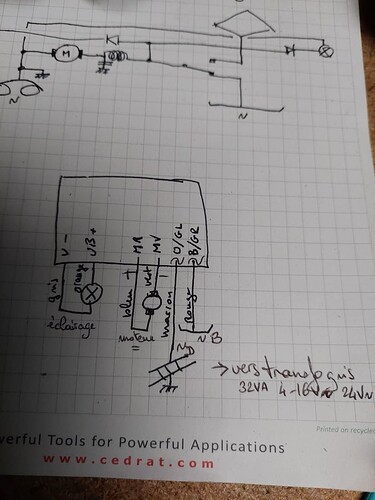 M
~
~
V -
UB+
MR
MV
O/GL
B/GR
gris
orange
bleu +
vert -
marron
Rouge
éclairage
moteur
=
~B
~O
→ vers tranfo gris
32VA 4-16V~ 24V~
Printed on recycled
werful Tools for Powerful Applications
www.cedrat.com